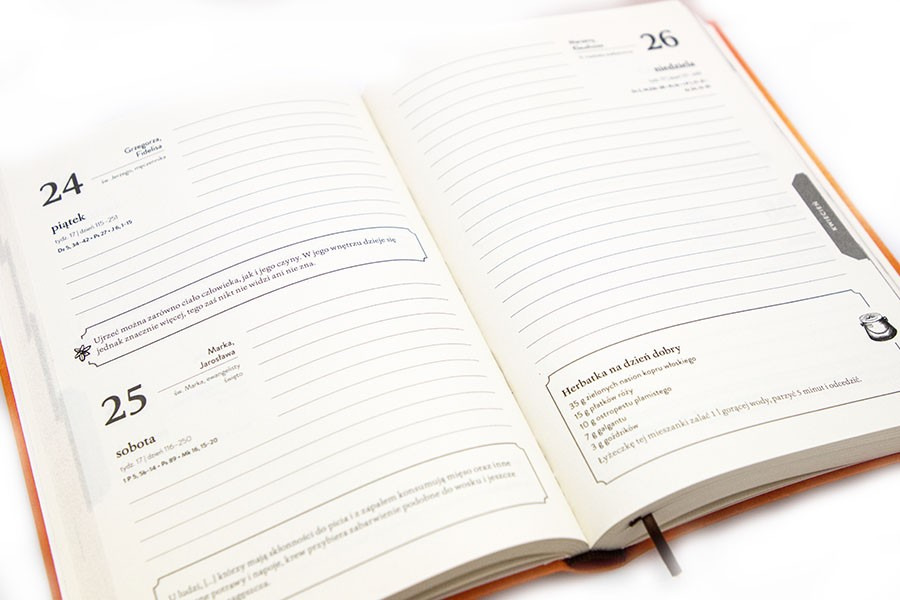 24
piątek
tydz. 17 | dzień 115–251
Dz 5, 34-42 • Ps 27 • J 6, 1-15
Grzegorza,
Fidelisa
św. Jerzego, męczennika
Ujrzeć można zarówno ciało człowieka, jak i jego czyny. W jego wnętrzu dzieje się
jednak znacznie więcej, tego zaś nikt nie widzi ani nie zna.
25
sobota
tydz. 17 | dzień 116–250
1 P 5, 5b-14 • Ps 89 • Mk 16, 15-20
Marka,
Jarosława
św. Marka, ewangelisty
święto
U ludzi, [...] którzy mają skłonności do picia i z zapałem konsumują mięso oraz inne
potrawy i napoje, krew przybiera zabarwienie podobne do wosku i jeszcze
26
niedziela
KWIECIEŃ
Herbatka na dzień dobry
35 g zielonych nasion kopru włoskiego
15 g płatków róży
10 g ostropestu plamistego
7 g galgantu
3 g goździków
Łyżeczkę tej mieszanki zalać 1 l gorącej wody, parzyć 5 minut i odcedzić.